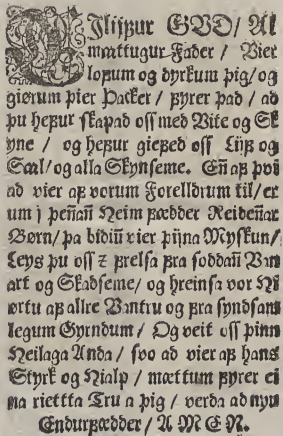 Eilijfur GVD / Al
mattugur Fader / Vier
lofum og dyrkum þig / og
giørum þier Þacker / fyrer það / að
þu hefur skapað oss med Vite og Sk
yne / og hefur giefeð oss Lijf og
Sæl / og alla Skynseme. En̄ af þvi
að vier af vorum Forelldrum til / er
um j þen̄an̄ Heim fædder Reiden̄ar
Børn / þa bidiū vier þijna Myskun /
Leys þu oss z frelsa fra soddan̄ Van
art og Skadseme / og hreinsa vor Hi
ørtu af allre Vantru og fra syndsam
legum Gyrndum / Og veit oss þinn
Heilaga Anda / svo að vier af hans
Styrk og Hialp / mættum fyrer ei
na rietta Tru a þig / verda að nyu
Endurfædder / A M E N.